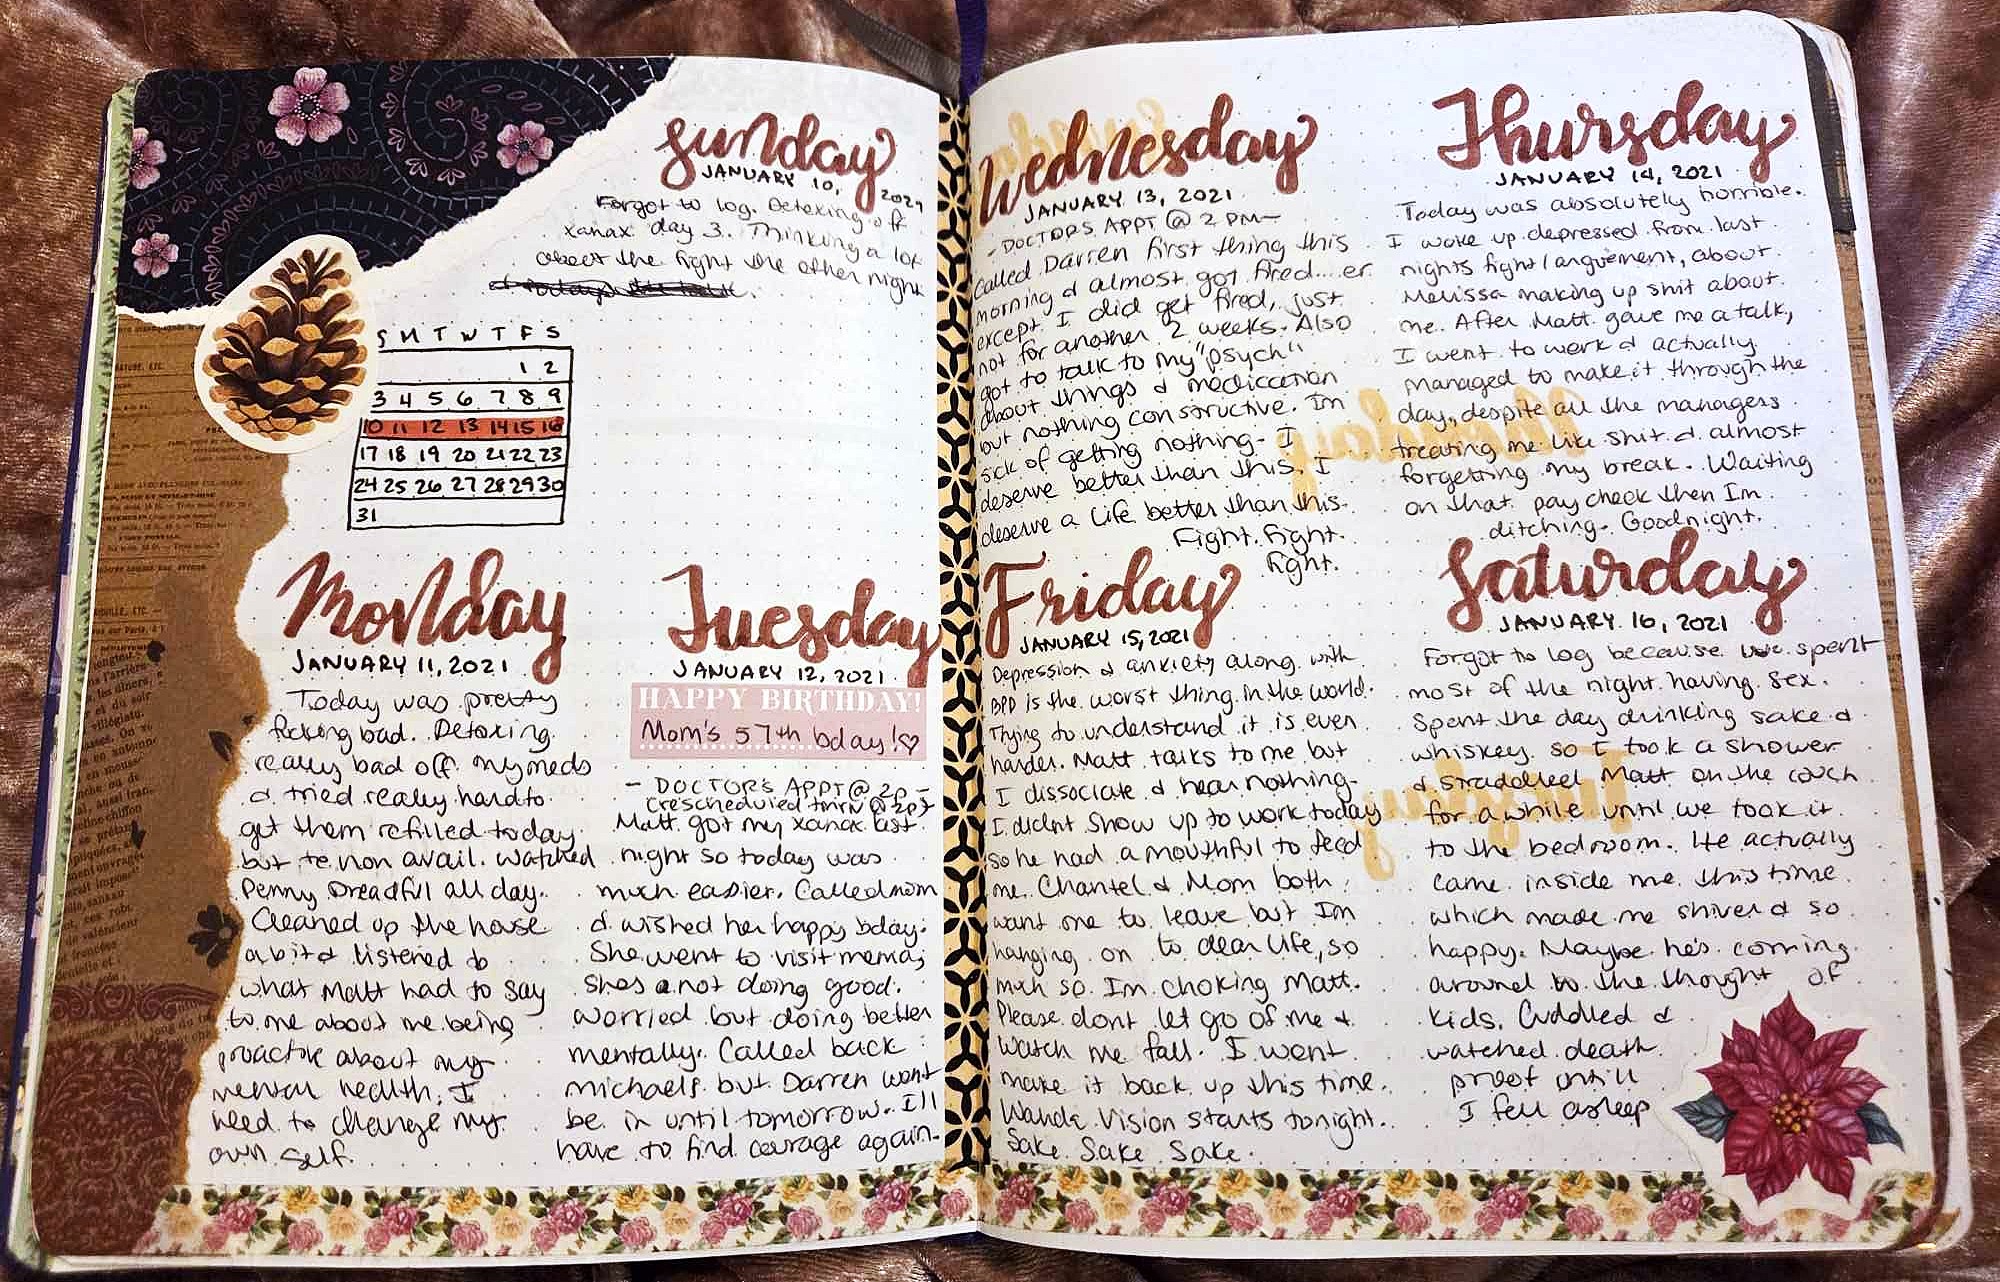 Sunday
JANUARY 10, 2021
Forgot to log. Detoxing off
xanax day 3. Thinking a lot
about the fight the other night
S M T W T F S
1 2
3 4 5 6 7 8 9
10 11 12 13 14 15 16
17 18 19 20 21 22 23
24 25 26 27 28 29 30
31
Monday
JANUARY 11, 2021
Today was pretty
fucking bad. Detoxing
really bad off my meds
& tried really hard to
get them refilled today
but to non avail. Watched
Penny Dreadful all day.
Cleaned up the house
a bit & listened to
what Matt had to say
to me about me being
proactive about my
mental health. I
need to change my
own self.
Tuesday
JANUARY 12, 2021
HAPPY BIRTHDAY!
Mom's 57th bday!♡
- DOCTOR'S APPT @ 2p -
(rescheduled tmrw @ 2p)
Matt got my xanax last
night so today was
much easier. Called mom
& wished her happy bday.
She went to visit mema,
shes not doing good.
Worried but doing better
mentally. Called back
michaels but Darren wont
be in until tomorrow. I'll
have to find courage again.
Wednesday
JANUARY 13, 2021
- DOCTORS APPT @ 2 PM -
Called Darren first thing this
morning & almost got fired....er
except I did get fired, just
not for another 2 weeks. Also
got to talk to my "psych"
about things & medication
but nothing constructive. Im
sick of getting nothing - I
deserve better than this. I
deserve a life better than this.
Fight. Fight.
Fight.
Thursday
JANUARY 14, 2021
Today was absolutely horrible.
I woke up depressed from last
nights fight/arguement, about
Melissa making up shit about
me. After Matt gave me a talk,
I went to work & actually
managed to make it through the
day, despite all the managers
treating me like shit & almost
forgetting my break. Waiting
on that pay check then Im
ditching. Goodnight.
Friday
JANUARY 15, 2021
Depression & anxiety along with
BPD is the worst thing in the world.
Trying to understand it is even
harder. Matt talks to me but
I dissociate & hear nothing.
I didnt show up to work today
so he had a mouthful to feed
me. Chantel & Mom both
want me to leave but Im
hanging on to dear life, so
much so Im choking Matt.
Please dont let go of me &
watch me fall. I wont
make it back up this time.
Wanda Vision starts tonight.
Sake. Sake. Sake.
Saturday
JANUARY 16, 2021
Forgot to log because we spent
most of the night having sex.
Spent the day drinking sake &
whiskey so I took a shower
& straddled Matt on the couch
for a while until we took it
to the bedroom. He actually
came inside me this time
which made me shiver & so
happy. Maybe he's coming
around to the thought of
kids. Cuddled &
watched death
proof until
I fell asleep